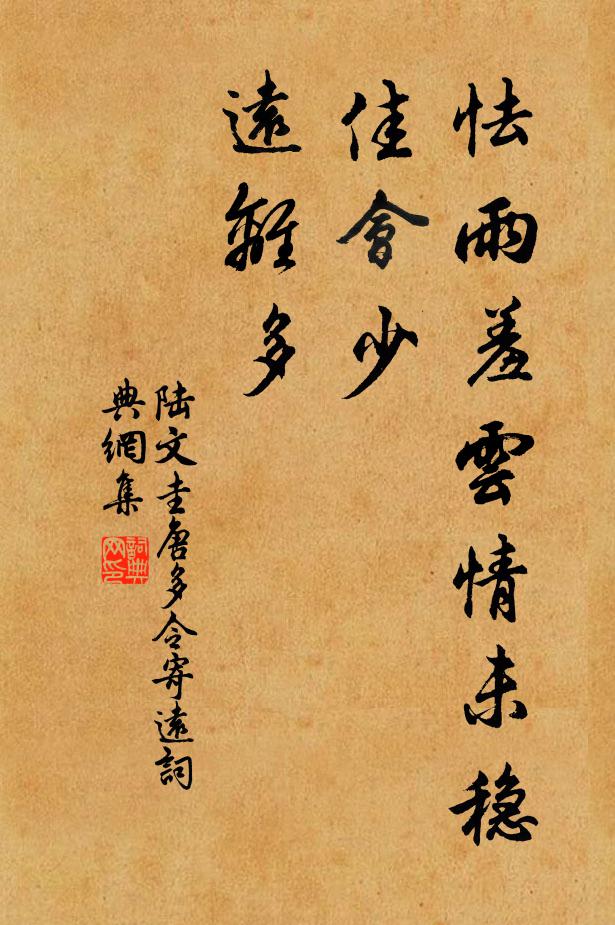 怯雨羞雲情未穏
佳會少
遠離多
陸文圭唐多令寄遠詞
典網集
詞典
网印